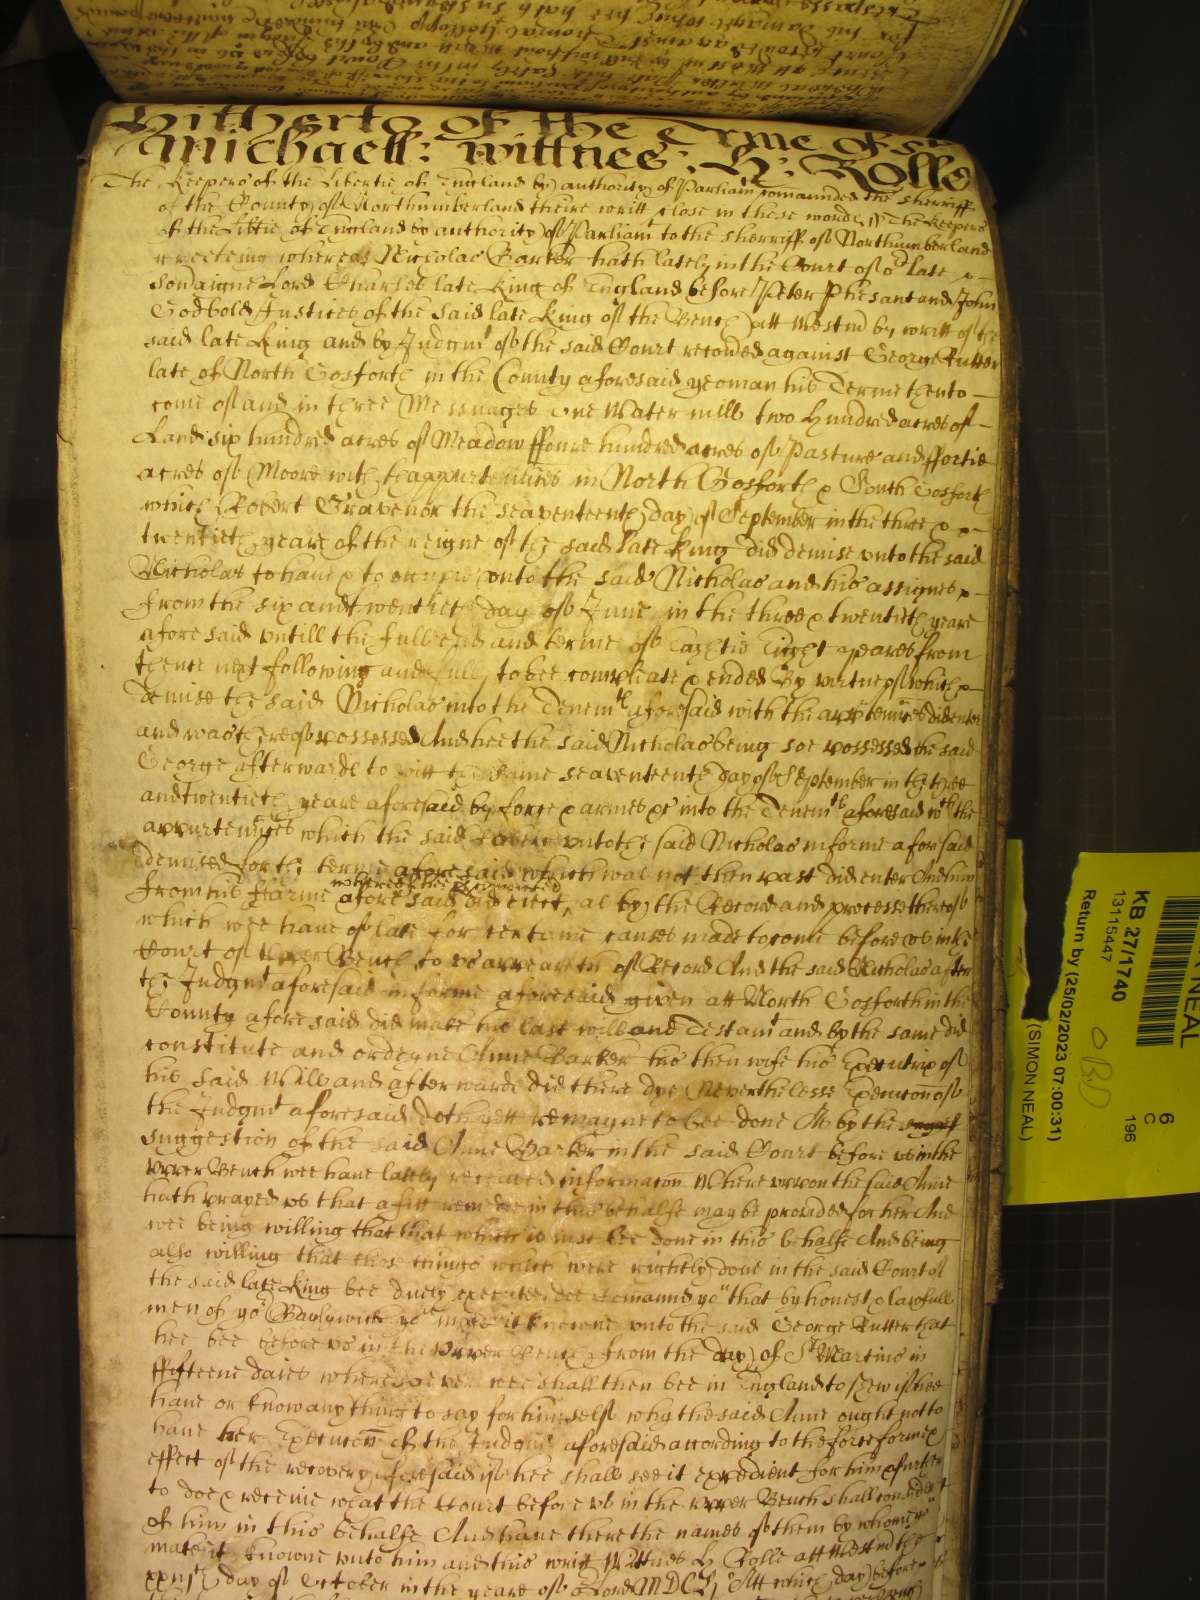 Hitherto of the Terme of St
Michaell: wittnes: H: Rolle
The Keepers of the Libertie of England by authority of Parliam comaunded the sherriff
of the County of Northumberland theire writt close in these words ss The Keepers
of the Libtie of England by authority of Parliam to the sherriff of Northumberland
greeteing whereas Nicholas Barker hath lately in the Court of or late
Soveraigne Lord Charles late King of England before Peter Phesant and John
Godbold Justices of the said late King of the Bench att Westm by writt of the
said late King and by Judgmt of the said Court recoved against George Rutter
late of North Gosforth in the County aforesaid yeoman his Terme then to
come of and in three Messuages one Water mill two hundred acres of
Land six hundred acres of Meadow ffoure hundred acres of Pasture and ffortie
acres of Moore with thappurtennces in North Gosforth & South Gosforth
which Robert Gravenor the seaventeenth day of September in the three &
twentieth yeare of the reigne of the said late King did demise vnto the said
Nicholas to have & to occupie vnto the said Nicholas and his assignes
from the six and twentieth day of June in the three & twentieth yeare
aforesaid vntill the full end and terme of Eight yeares from
thence next following and fully to bee compleate & ended By virtue of which
demise the said Nicholas into the Tenemts aforesaid with the apptennces did enter
and was thereof possessed And hee the said Nicholas being soe possessed the said
George afterwards to witt the same seaventeenth day of September in the three
and twentieth yeare aforesaid by force & armes &c into the Tenemts aforesaid wth the
appurtennces which the said Robert vnto the said Nicholas in forme aforesaid
demised for the terme aforesaid which was not then past did enter And him
from his ffarme aforesaid did eject, as by the Record and processe thereof
whereof hee is convicted
which wee have of late for certaine causes made to come before vs in the
Court of Upper Bench to vs appeareth of Record And the said Nicholas after
the Judgmt aforesaid in forme aforesaid given att North Gosforth in the
County aforesaid did make his last will and Testamt and by the same did
constitute and ordeyne Anne Barker his then wife his Executrix of
his said Will and afterwards did there dye Neverthelesse Execucon of
the Judgmt aforesaid doth yett remayne to bee done As by the
suggestion of the said Anne Barker in the said Court before vs in the
vpper Bench wee have lately received informacon Wherevpon the said Anne
hath prayed vs that a fitt remedie in this behalfe may be provided for her And
wee being willing that that which is just bee done in this behalfe And being
also willing that those things which were rightly done in the said Court of
the said late King bee duely executed doe comaund you that by honest & lawfull
men of yor Baylywick you make it knowne vnto the said George Rutter that
hee bee before vs in the vpper Bench from the day of St Martins in
ffifteene daies wheresoever wee shall then bee in England to shew if hee
have or know any thing to say for himself why the said Anne ought not to
have her Execucon of the Judgmt aforesaid according to the force forme &
effect of the recovery aforesaid if hee shall see it expedient for him & further
to doe & receive what the Court before vs in the vpper Bench shall consider
of him in this behalfe And have there the names of them by whome you
make it knowne vnto him and this writt Wittnes H Rolle att Westm the
day of October in the yeare of or Lord MDCL Att which day before
KB 27/1740
13115447
Return by (25/02/2023 07:00:31)
(SIMON NEAL)
NEAL
6
C
196